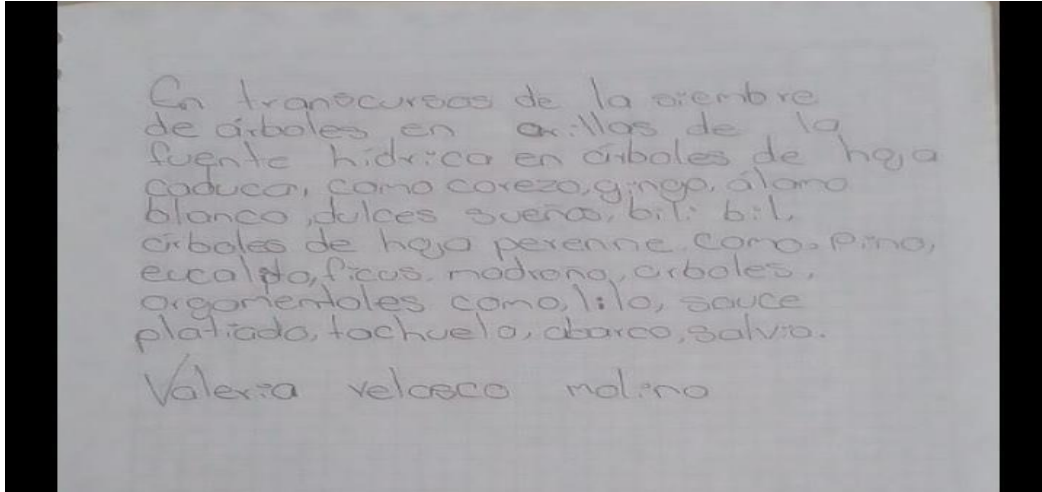 En transcursos de la siembre
de árboles en orillas de la
fuente hídrica en árboles de hoja
caduca, como corezo, gingo, álamo
blanco, dulces sueños, bili bil,
árboles de hoja perenne como. Pino,
eucalpto, ficus, madrono, arboles,
orgamentales como, lilo, sauce
platiado, tachuelo, abarco, salvio.
Valeria velasco molino